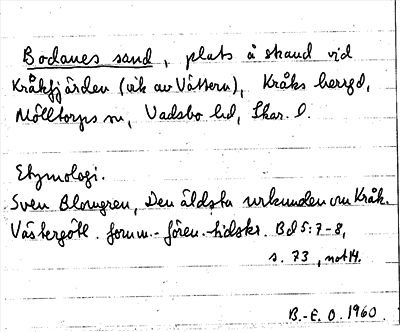 Bodanes sand, plats å strand vid
Kråkfjärden (vik av Vättern), Kråks herrgd,
Mölltorps sn, Vadsbo hd, Skar. l.
Etymologi.
Sven Blomgren, Den äldsta urkunden om Kråk.
Västergötl. fornm.-fören. tidskr. Bd 5:7-8,
s. 73, not 14.
B.-E. O. 1960.